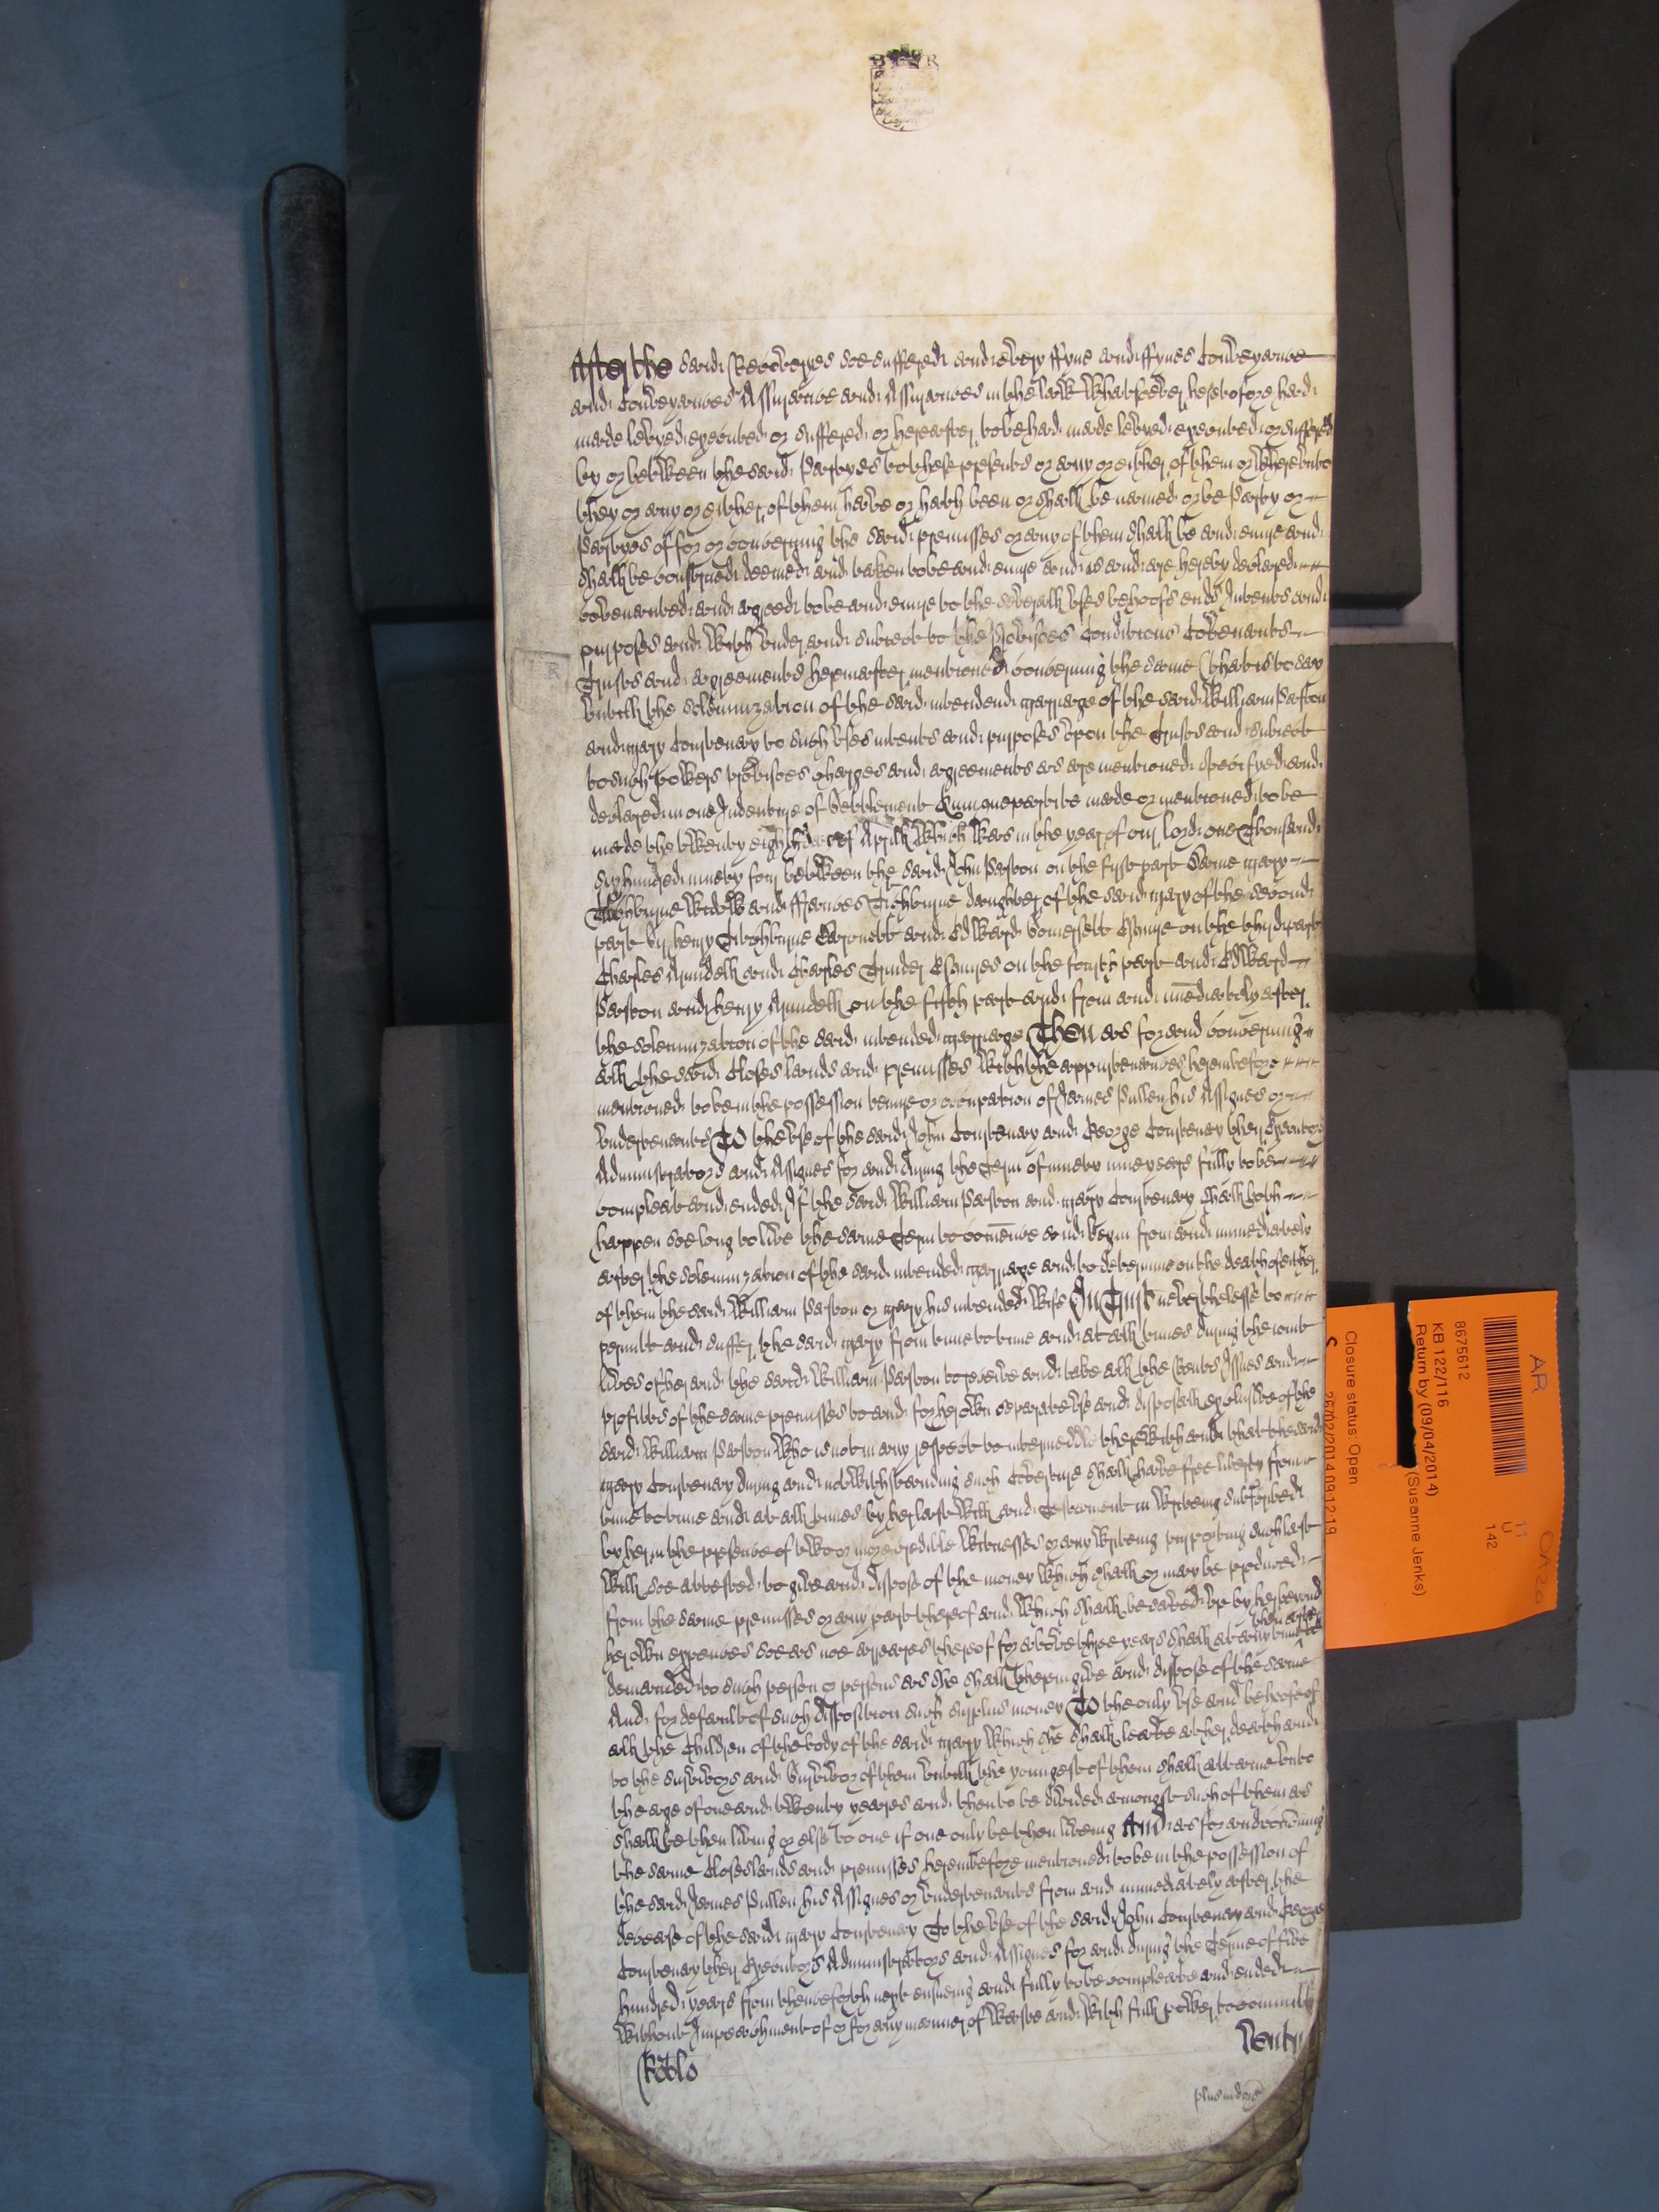 After the said Recoveryes soe suffered and every ffyne and ffynes Conveyance
and Conveyances Assurance and Assurances in the Law Whatsoever heretofore had
made levyed executed or suffered or hereafter to be had made levyed executed or suffered
by or between the said Partyes to these presents or any or either of them or whereunto
they or any or either of them have or hath been or shall be named or be Party or
Partyes of for or concerning the said premisses or any of them shall be and enure and
shall be construed deemed and taken to be and enure and is and are hereby declared
covenanted and agreed to be and enure to the severall uses behoofs ends Intents and
purposes and With under and subiect to the Provisoes Conditions Covenants
Trusts and agreements hereinafter mentioned concerning the same (that is to say
untill the solemnization of the said intended marriage of the said William Paston
and mary Courtenay to such uses intents and purposes upon the Trusts and subiect
to such powers provisoes charges and agreements as are mentioned specifyed and
declared in one Indenture of Settlement Quinquepartite made or mentioned to be
made the twenty eighth day of Aprill Which Was in the year of our Lord one Thousand
six hundred ninety four between the said John Paston on the first part Dame mary
Tichburne Widow and ffrances Tichburne daughter of the said mary of the second
part Sir henry Titchburne Baronett and Edward Somersett Esquire on the third part
Charles Arundell and Charles Trinder Esquires on the fourth part and Edward
Paston and henry Arundell on the fifth part and from and imediately after
the solemnization of the said intended marriage Then as for and concerning
all the said Closes lands and premisses With the appurtenances hereinbefore
mentioned to be in the possession tenure or occupation of James Pullen his Assignes or
undertenants To the use of the said John Courtenay and George Courtenay their Executors
Administrators and Assignes for and during the Term of ninety nine years fully to be
compleat and ended If the said William Paston and mary Courtenay shall both
happen soe long to live the same Term to comence and begin from and immediately
after the solemnization of the said intended marriage and to determine on the death of either
of them the said William Paston or mary his intended Wife In Trust neverthelesse to
permitt and suffer the said mary from time to time and at all times during the ioint
lives of her and the said William Paston to receive and take all the Rents Issues and
profitts of the same premisses to and for her own separate use and disposall exclusive of the
said William Paston Who is not in any respect to intermeddle therewith and that the said
mary Courtenay during and notwithstanding such Coverture shall have free liberty from
time to time and at all times by her last Will and Testament in Writing subscribed
by her in the presence of two or more credible Witnesses or any Writeing purporting such last
Will soe attested to give and dispose of the money Which shall or may be produced
from the same premisses or any part thereof and Which shall be saved up by her beyond
her own expences soe as noe arreares thereof for above three years shall at any time
then after be
demanded to such person or persons as she shall therein give and dispose of the same
And for default of such disposition such surplus money To the only use and behoofe of
all the Children of the body of the said mary Which she shall leave at her death and
to the survivors and Survivor of them untill the youngest of them shall attaine unto
the age of one and twenty yeares and then to be divided amongst such of them as
shall be then living or else to one if one only be then liveing And as for and concerning
the same Closes lands and premisses hereinbefore mentioned to be in the possession of
the said James Pullen his Assignes or undertenants from and immediately after the
decease of the said mary Courtenay To the use of the said John Courtenay and George
Courtenay their Executors Administrators and Assignes for and during the Terme of five
hundred years from thenceforth next ensueing and fully to be compleate and ended
Without Impeachment of or for any manner of Waste and With full power to committ
AR
8675612
KB 122/116
Return by (09/04/2014)
(Susanne Jenks)
11
U
142
Closure status: Open
26/02/2014 09:12:19